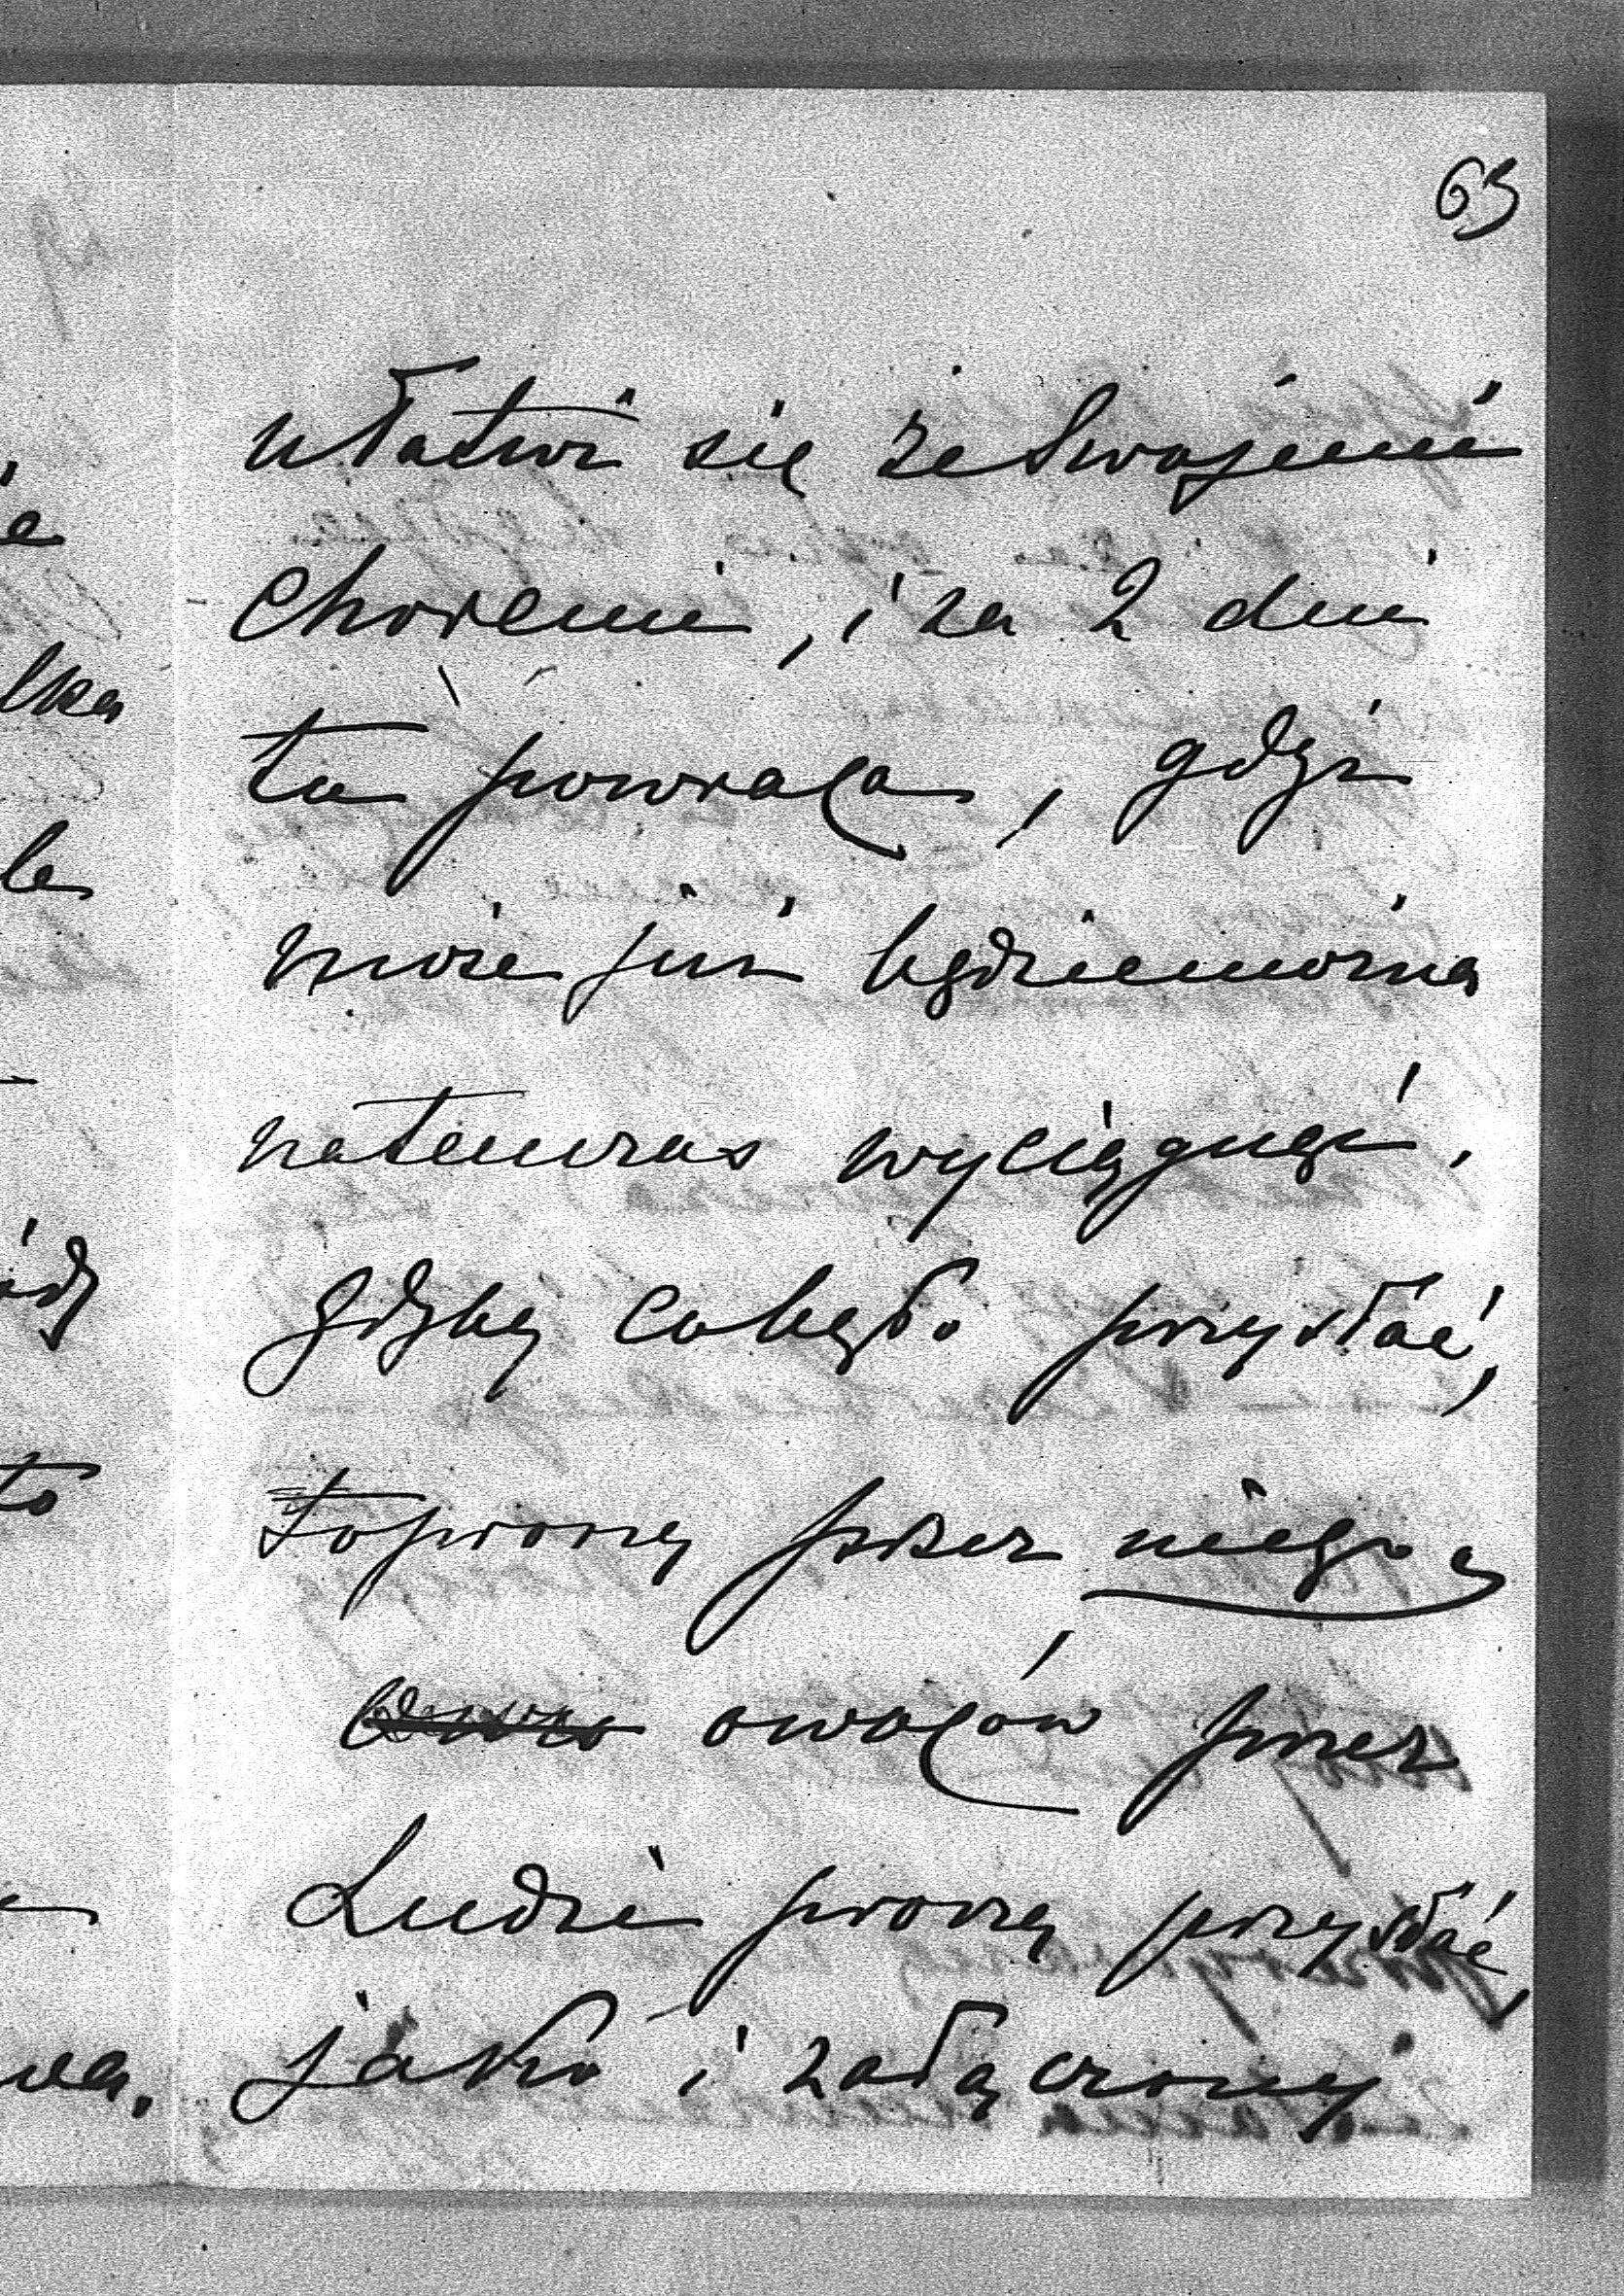 63
ułatwi się ze swojemi
choremi, i za 2 dni
tu powraca, gdyż
może już będzie można
natenczas wyciągnąć.
Gdyby co było przysłać,
to proszę przez niego
owoców przez
Ludzi proszę przysłać,
jako i załączony